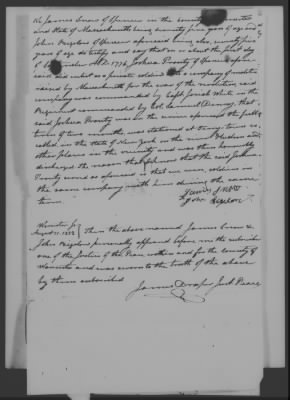 We James Snow of Spencer in the county of Worcester
and State of Massachusetts being seventy five years of age and
John Bigelow of Spencer aforesaid being also seventy five
years of age do testify and say that on or about the first day
of A.D. 1776, Joshua Prouty of Spencer afore-
said and enlist as a private soldier in a company of militia
raised by Massachusetts for the war of the revolution said
company was commanded by Capt Josiah White in the
Regiment commanded by Col. Samuel Denny, that
said Joshua Prouty was in the service aforesaid the full
term of two months, was stationed at Tarry-town so
called, in the State of New York in the and
other places in the vicinity and was then honorably
discharged the reason that appears that the said Joshua
Prouty served as aforesaid is that we were soldiers in
the same company with him during the same
term.
James Snow
John Bigelow
Worcester Ss
August 11. 1832 Then the above named James Snow &
John Bigelow personally appeared before me the subscriber
one of the Justices of the Peace within and for the County of
Worcester and was sworn to the truth of the above
by them subscribed
James Draper Just Peace